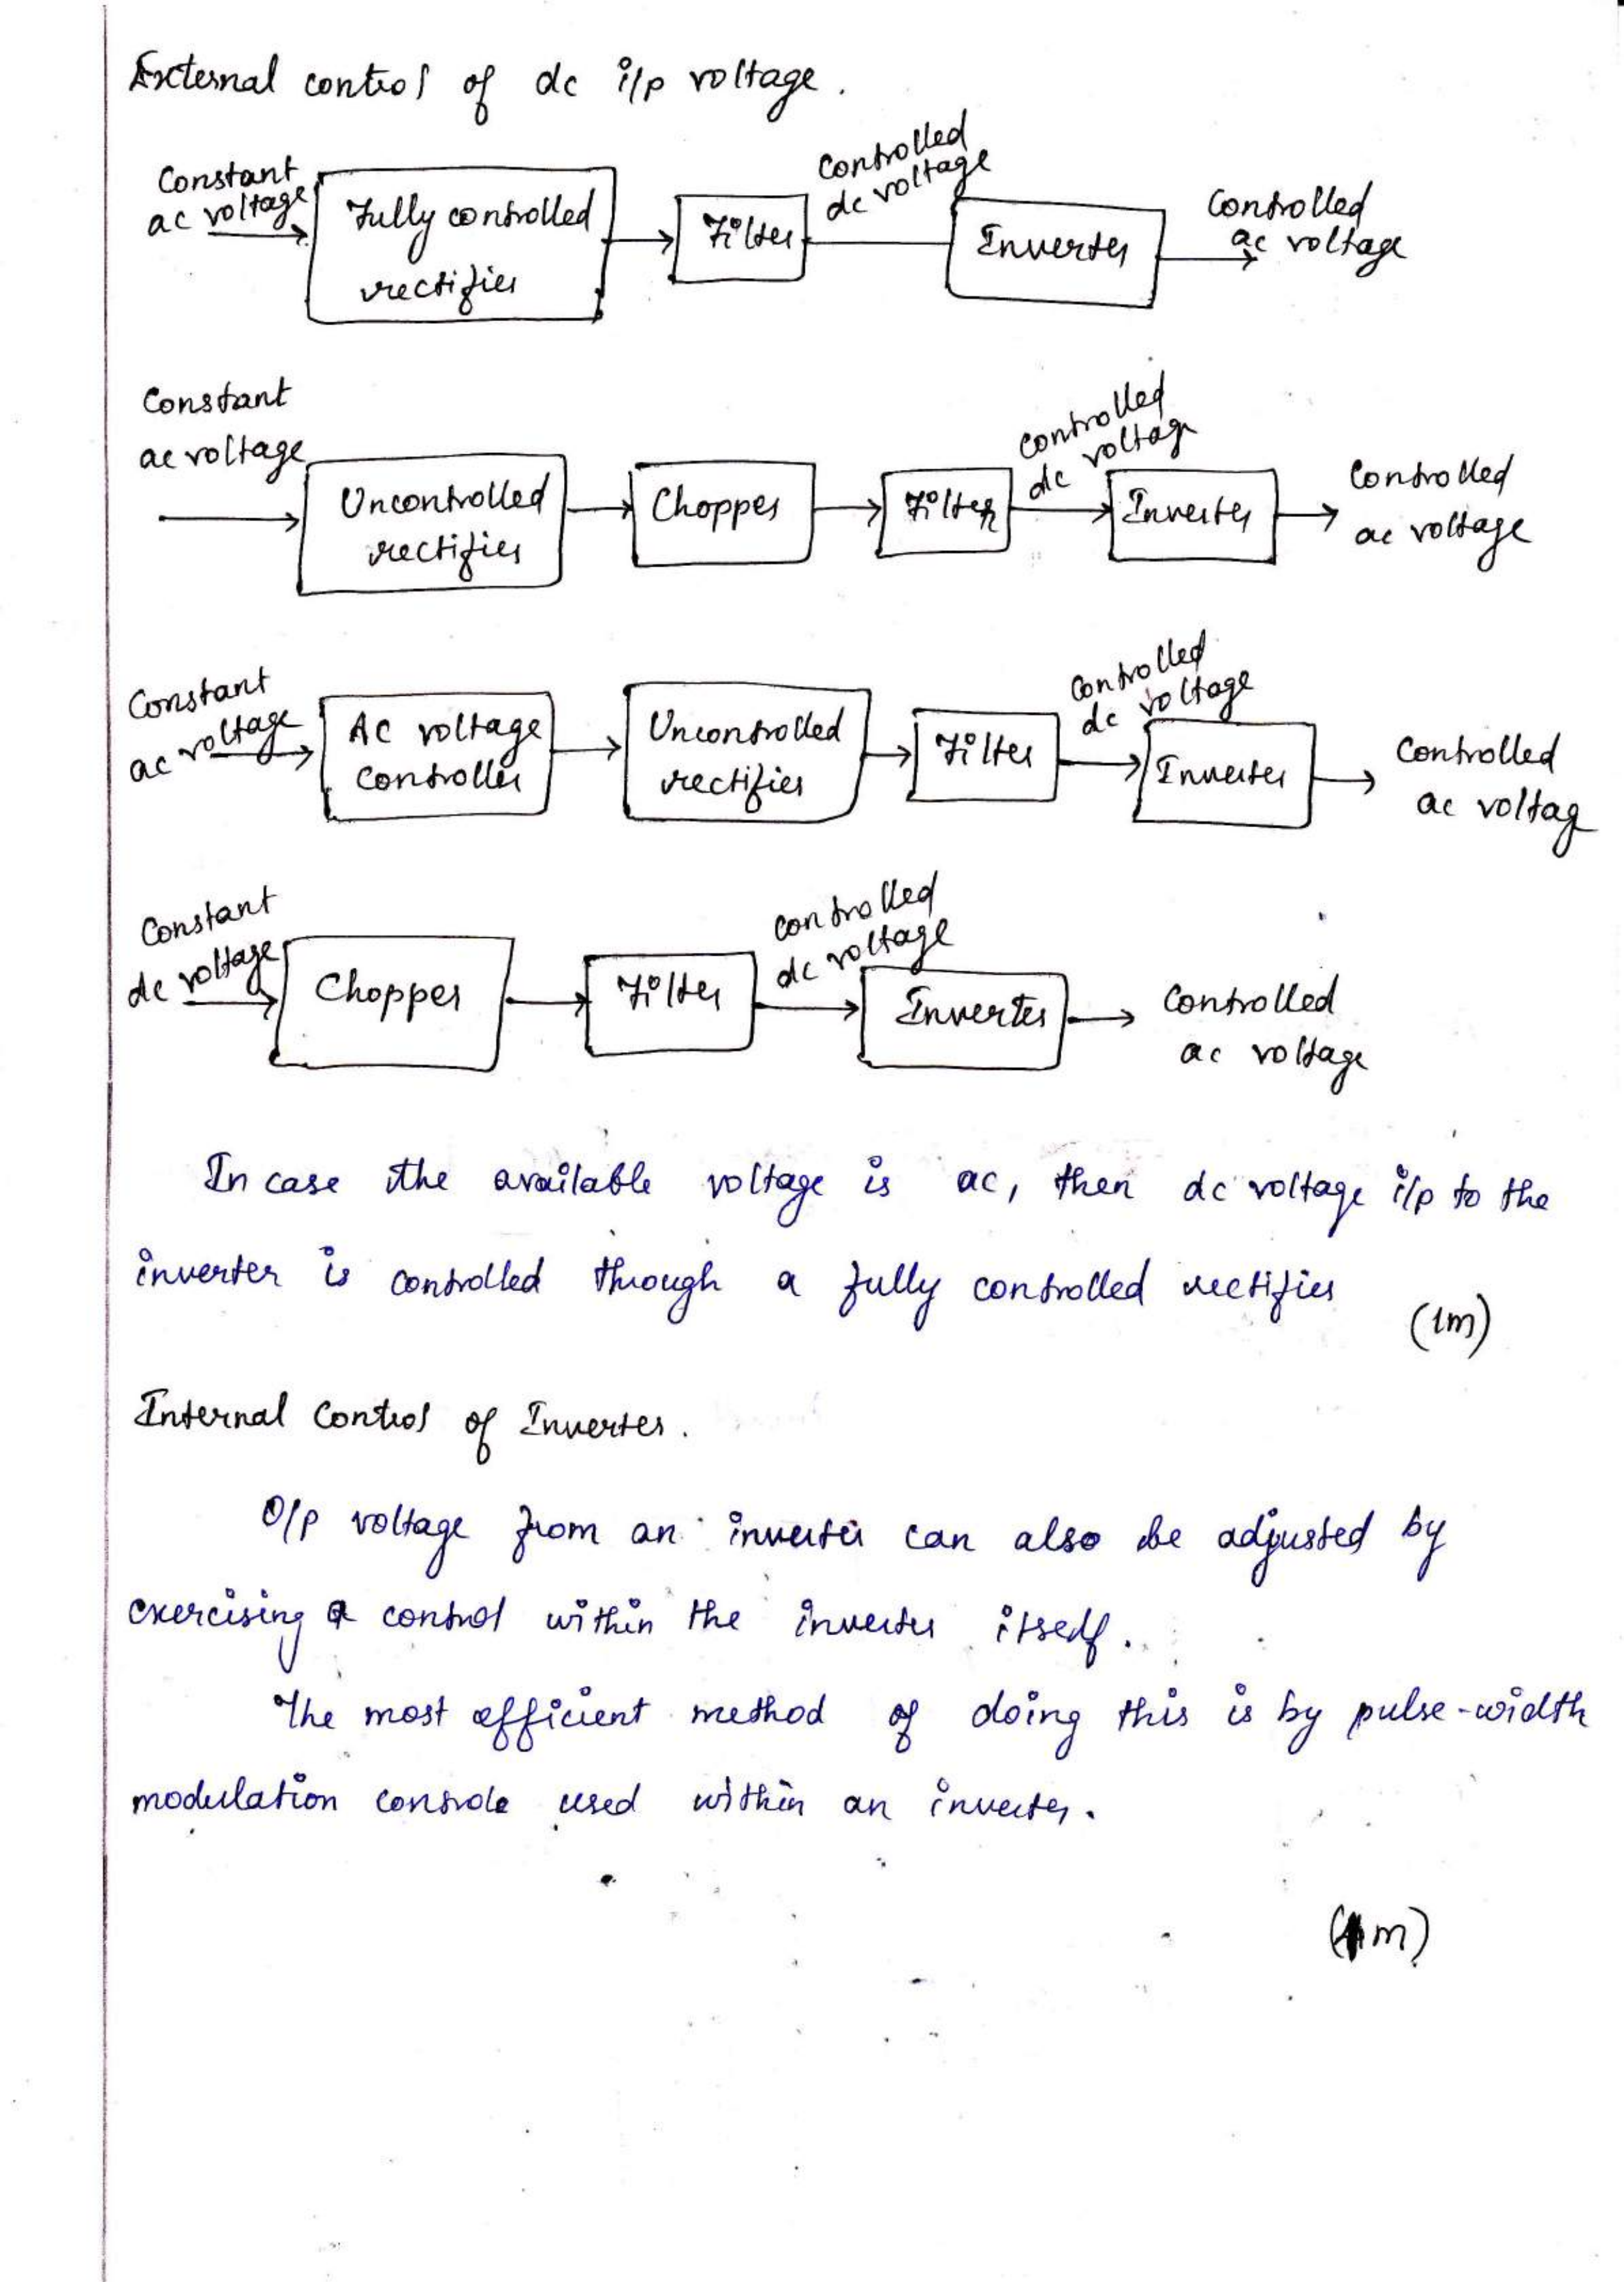 External control of dc i/p voltage.
Constant
ac voltage
Fully controlled
rectifier
Filter
Controlled
dc voltage
Inverter
Controlled
ac voltage
Constant
ac voltage
Uncontrolled
rectifier
Chopper
Filter
controlled
dc voltag
Inverter
Controlled
ac voltage
Constant
ac voltage
AC voltage
Controller
Uncontrolled
rectifier
Filter
controlled
dc voltage
Inverter
Controlled
ac voltag
Constant
dc voltage
Chopper
Filter
controlled
dc voltage
Inverter
Controlled
ac voltage
In case the available voltage is ac, then dc voltage i/p to the
inverter is controlled through a fully controlled rectifier
(1m)
Internal Control of Inverter.
O/p voltage from an inverter can also be adjusted by
exercising a control within the inverter itself.
The most efficient method of doing this is by pulse-width
modulation used within an inverter.